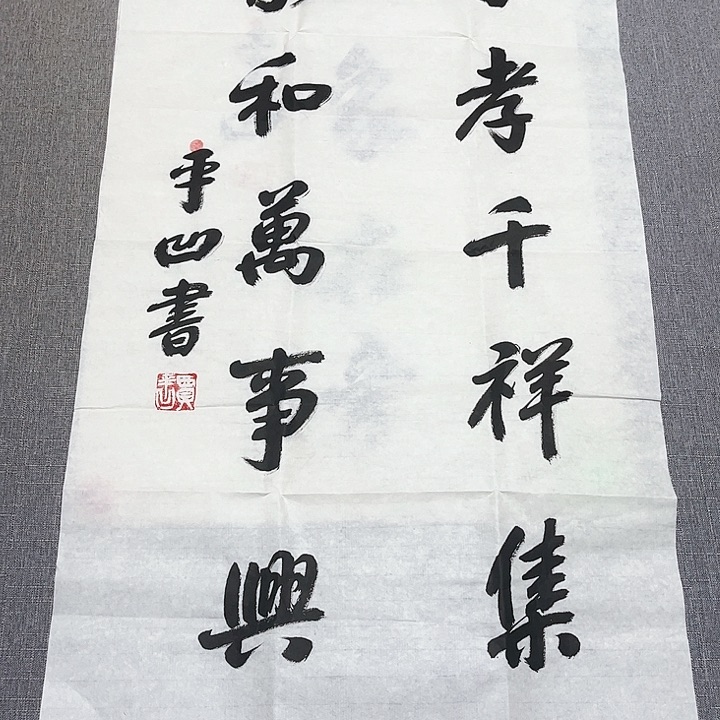 孝千祥集
和萬事興
平凹書